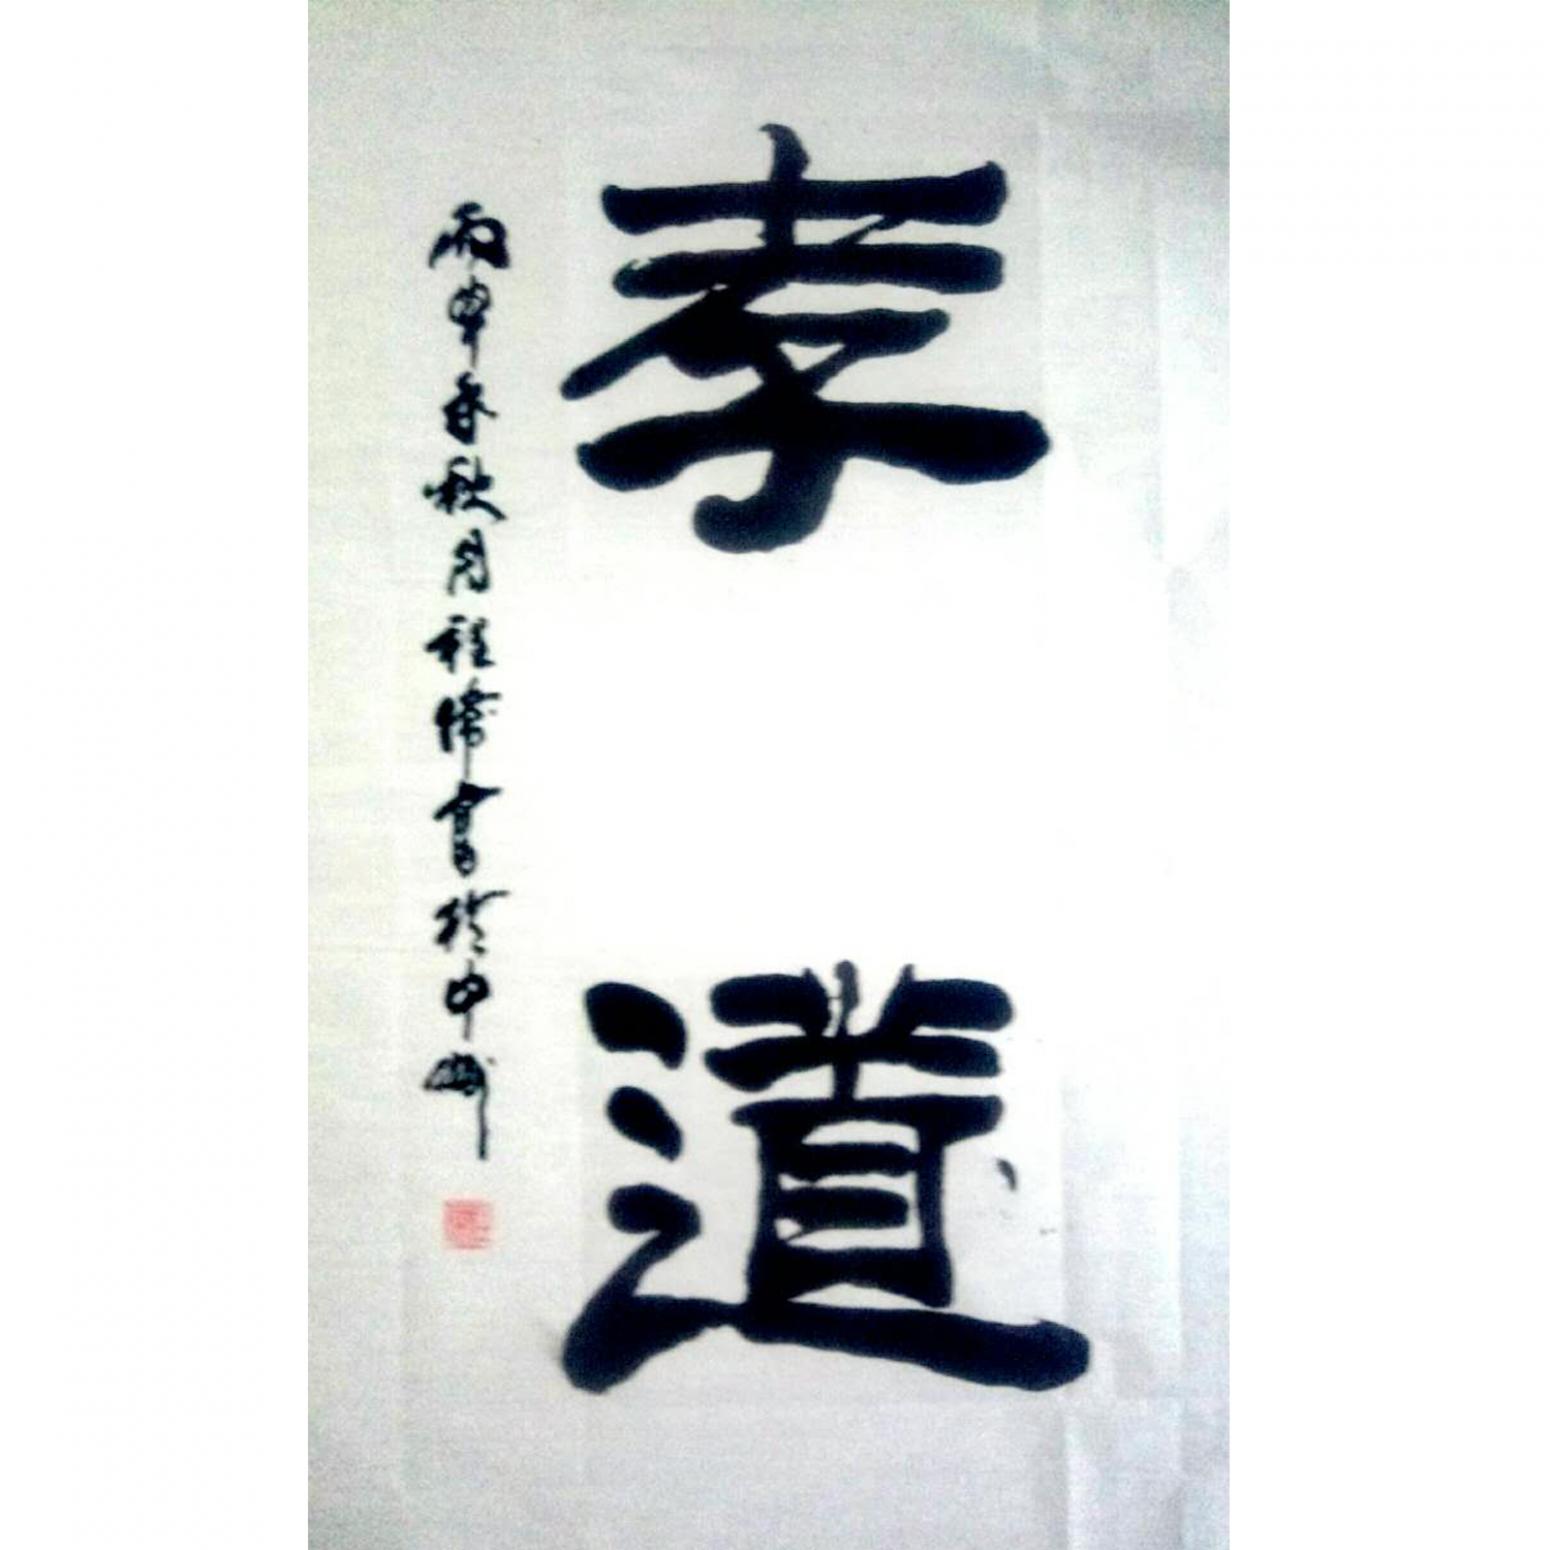 孝道
丙申年秋月程偉書於中州